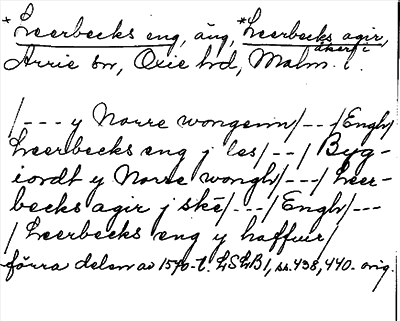 *Leerbecks eng, äng, *Leerbecks agir,
åker i
Arrie sn, Oxie hd, Malm. l.
/--- y Norre wongenn/---/Engh/
Leerbecks eng j les/---/ Byg-
iordt y Norre wongh/---/ Leer-
becks agir j ske/---/Engh/---
/ Leerbecks eng y haffuer/
förra delen av 1570-t. LSLB1, ss. 438, 440. orig.